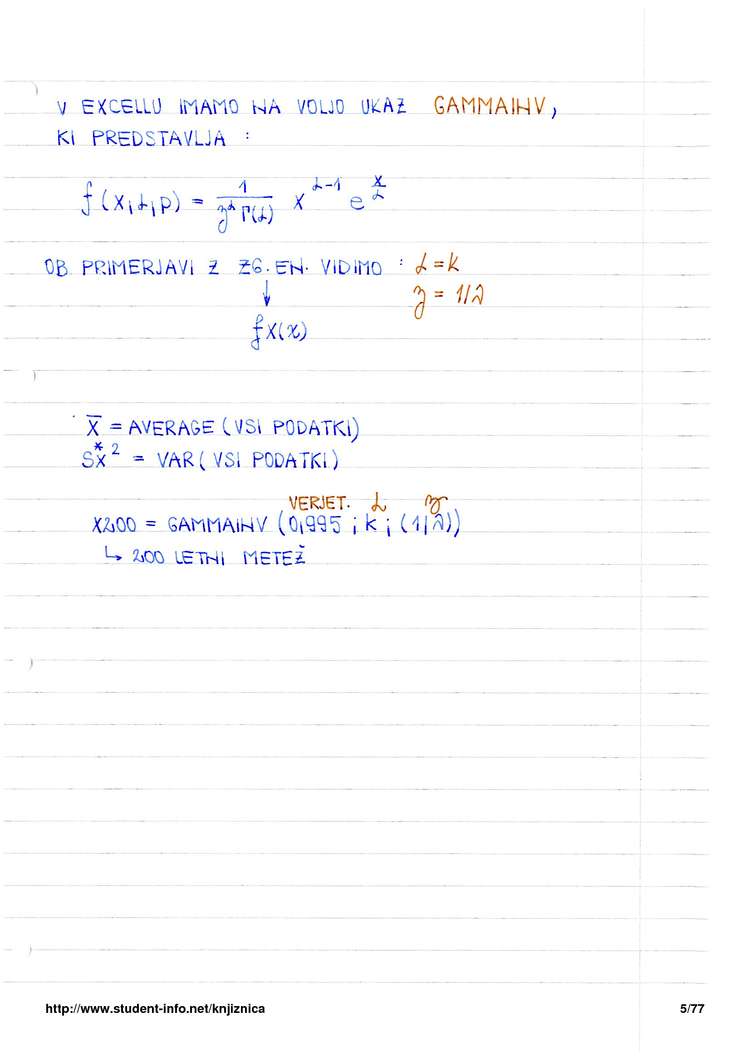 V EXCELLU IMAMO NA VOLJO UKAZ GAMMAINV,
KI PREDSTAVLJA :
f(x,α,p) = 1/(z^α Γ(α)) x^(α-1) e^(x/α)
OB PRIMERJAVI Z ZG. EN. VIDIMO : α = k
↓ z = 1/λ
fX(x)
X̄ = AVERAGE (VSI PODATKI)
S*x² = VAR ( VSI PODATKI )
VERJET. α z
X200 = GAMMAINV (0,995 ; k ; (1/λ))
↳ 200 LETNI METEŽ
http://www.student-info.net/knjiznica 5/77